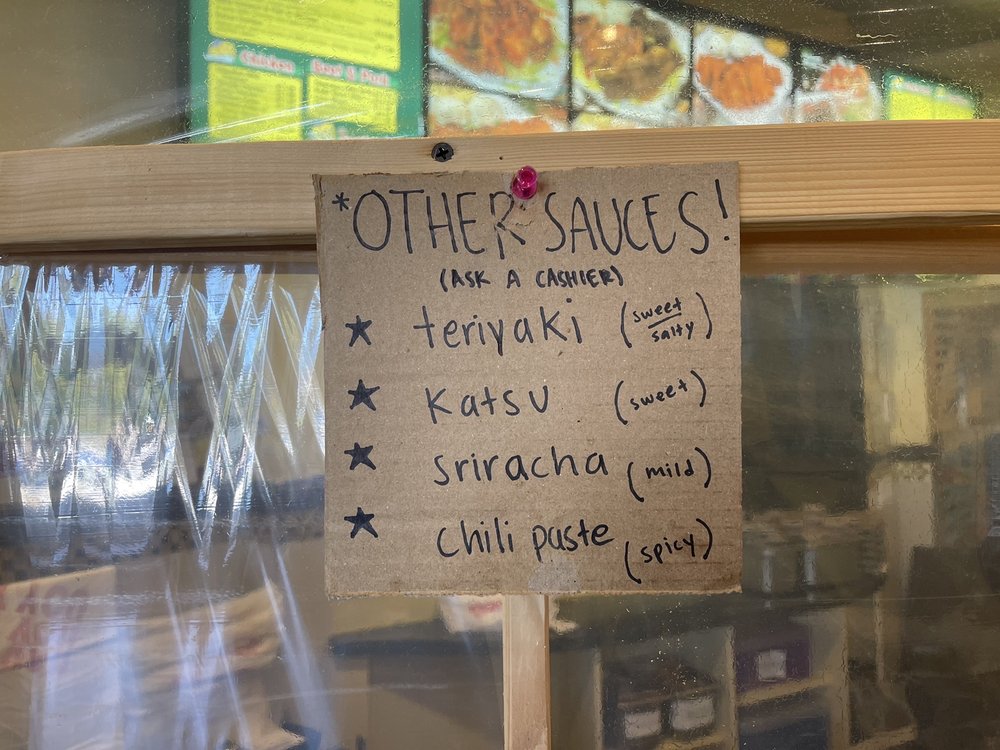 Chicken
Beef & Pork
*OTHER SAUCES!
(ASK A CASHIER)
★ teriyaki (sweet
salty)
★ Katsu (sweet)
★ sriracha (mild)
★ chili paste (spicy)